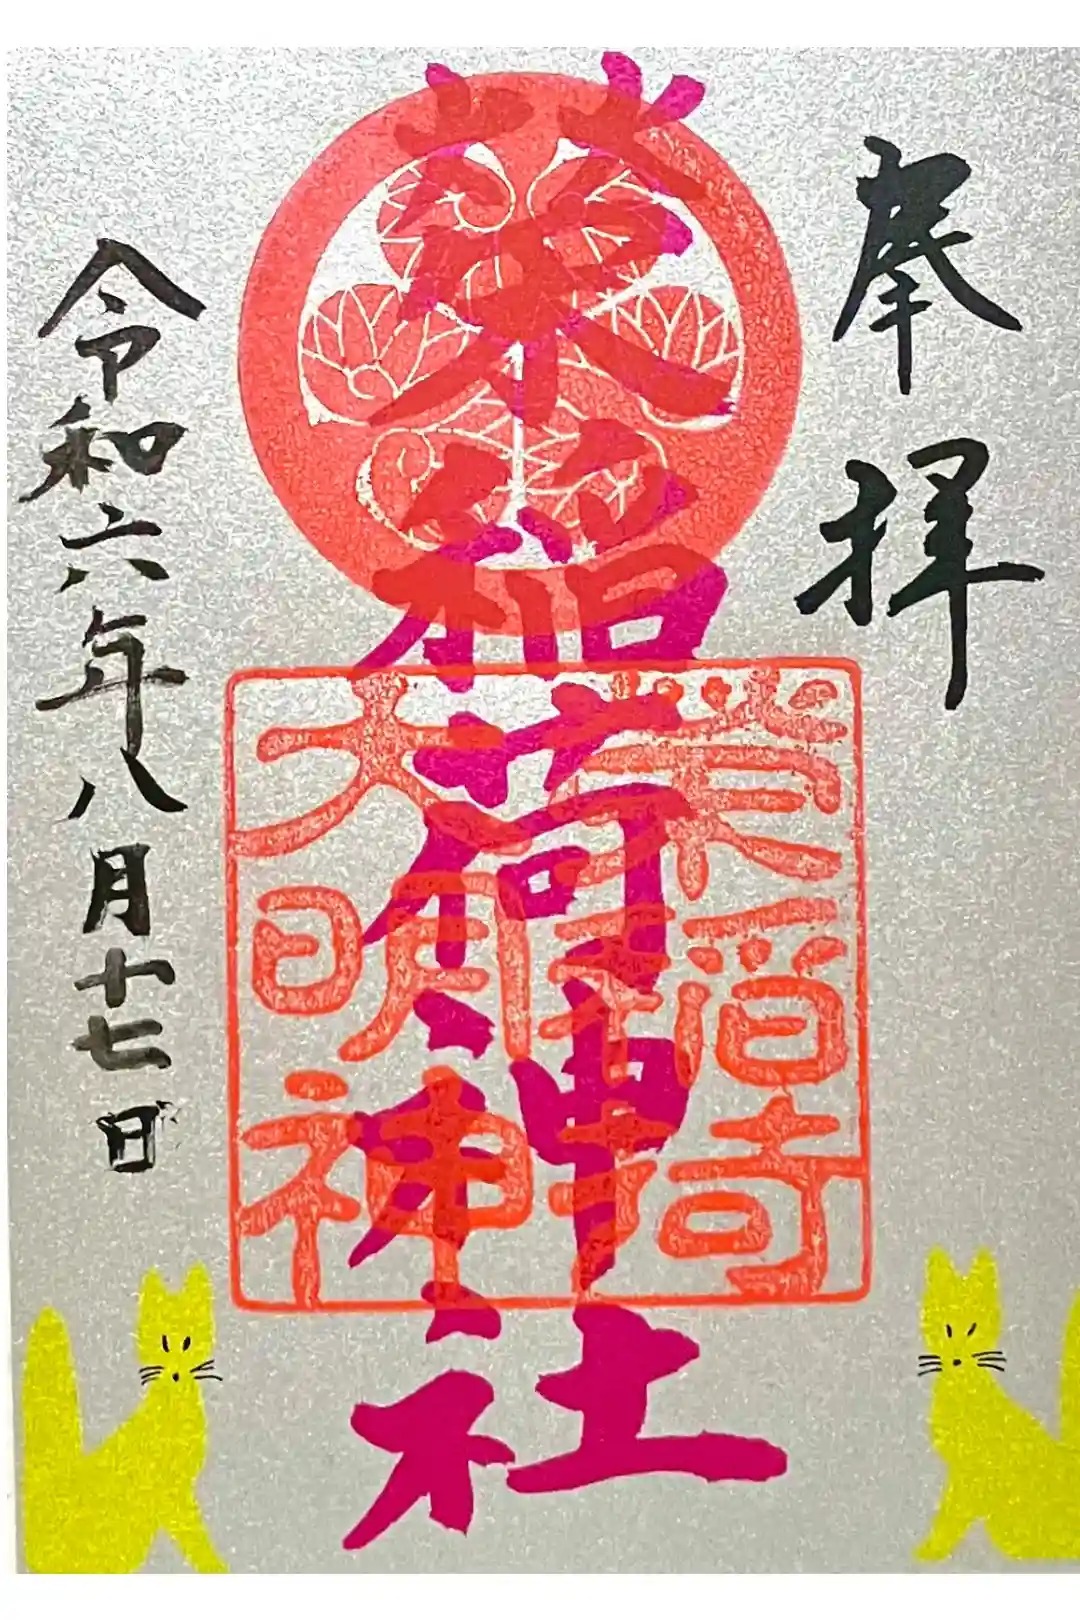 奉拝
葵稲荷神社
葵稲荷
大明神
令和六年八月十七日